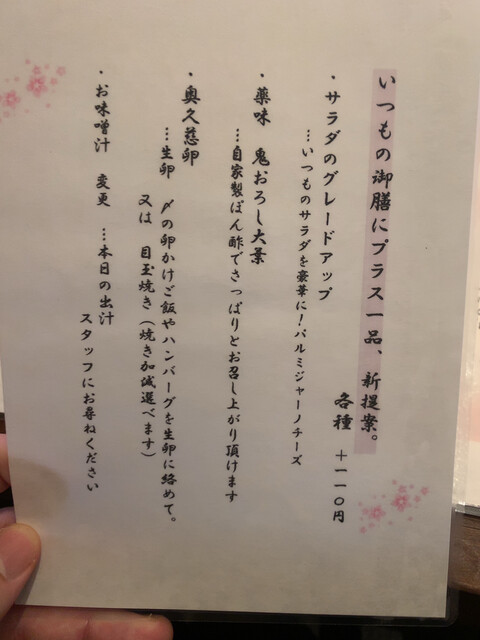 いつもの御膳にプラス一品、新提案。
各種 +一一〇円
・サラダのグレードアップ
…いつものサラダを豪華に!パルミジャーノチーズ
・薬味 鬼おろし大葉
…自家製ぽん酢でさっぱりとお召し上がり頂けます
・奥久慈卵
…生卵 〆の卵かけご飯やハンバーグを生卵に絡めて。
又は 目玉焼き(焼き加減選べます)
・お味噌汁 変更 …本日の出汁
スタッフにお尋ねください